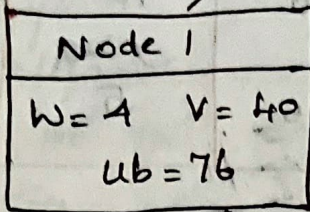 Node 1
W= 4 V= 40
Ub = 76